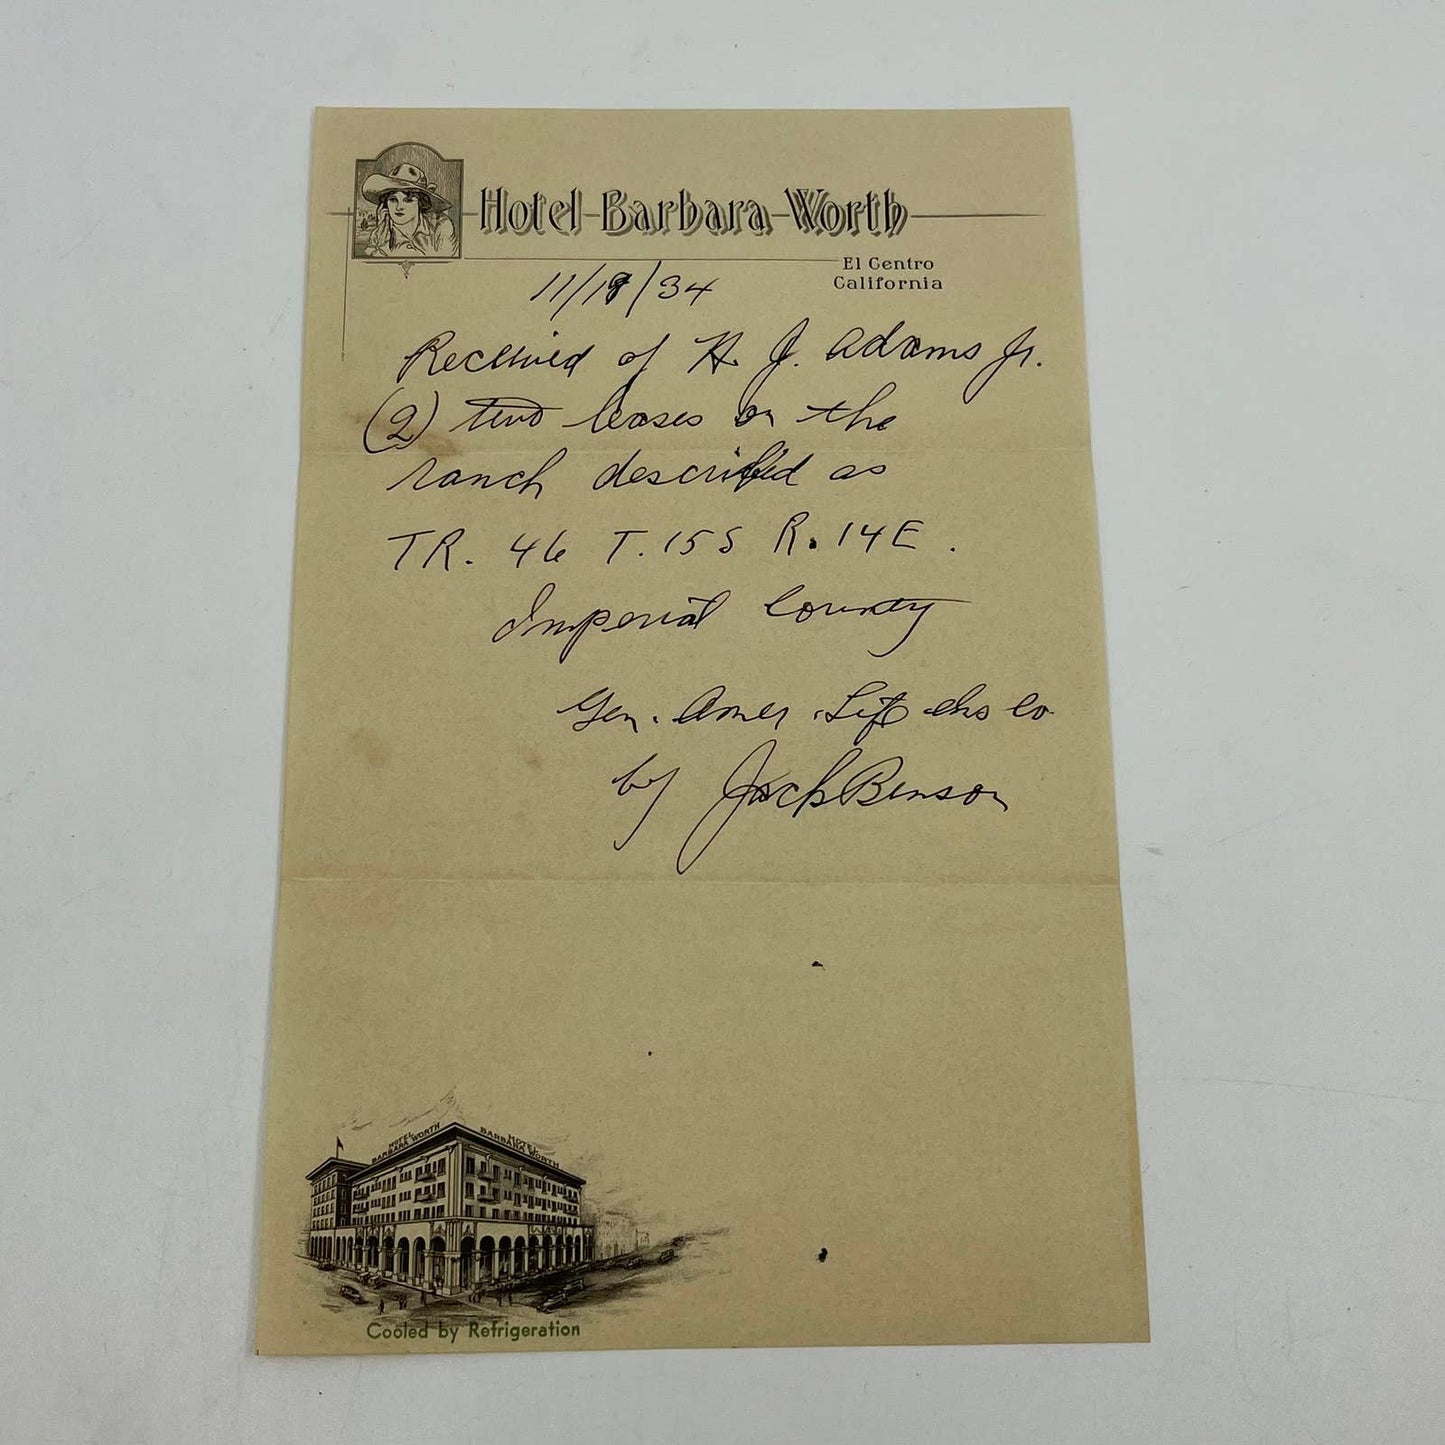 Hotel Barbara Worth
El Centro
California
11/19/34
Received of H. J. Adams Jr.
(2) two leases on the
ranch described as
TR. 46 T. 15S R. 14E.
Imperial County
Gen. Amer. Life Ins Co.
by Jack Benson
HOTEL BARBARA WORTH
HOTEL BARBARA WORTH
Cooled by Refrigeration